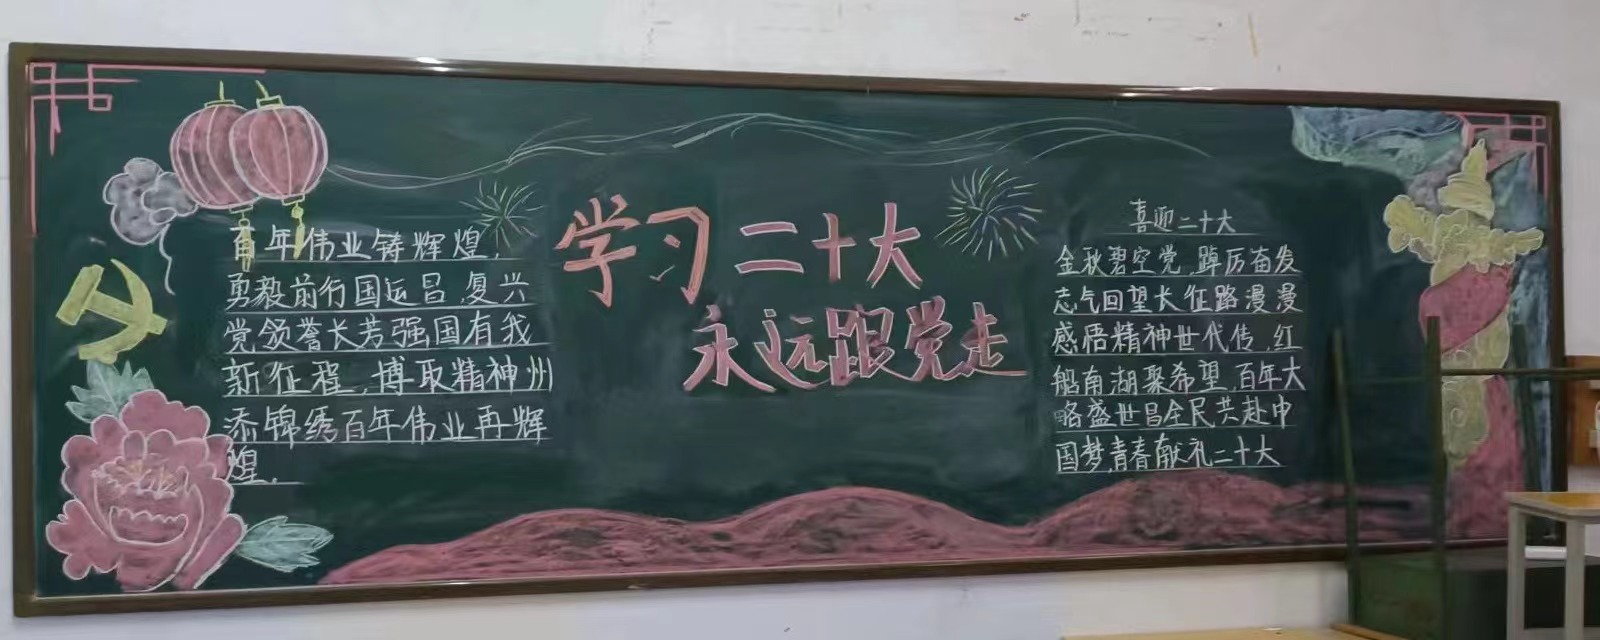 百年伟业铸辉煌,
勇毅前行国运昌,复兴
党领誉长芳强国有我
新征程,博取精神州
添锦绣百年伟业再辉
煌.
学习二十大
永远跟党走
喜迎二十大
金秋碧空党,踔厉奋发
志气回望长征路漫漫
感悟精神世代传,红
船南湖聚希望,百年大
略盛世昌全民共赴中
国梦,青春献礼二十大